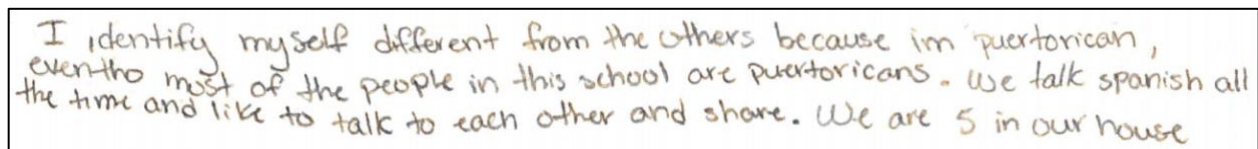 I identify myself different from the others because im puertorican,
eventho most of the people in this school are puertoricans. We talk spanish all
the time and like to talk to each other and share. We are 5 in our house